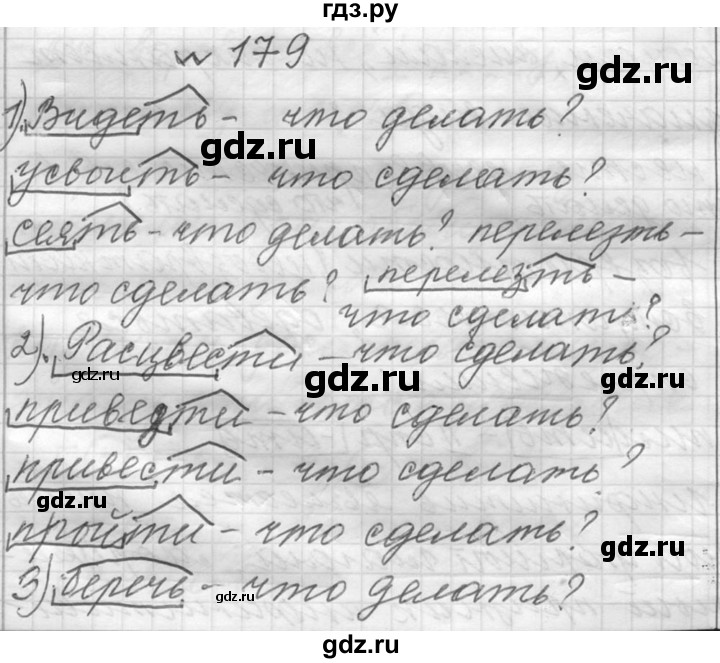 гдз.ру
№ 179
gdz.ru
1). Видеть - что делать?
gdz.ru
усвоить - что сделать?
сеять - что делать? перелезть -
что сделать? перелезть -
что сделать?
2). Расцвести - что сделать?
gdz.ru gdz.ru gdz.ru
приведти - что сделать?
привести - что сделать?
gdz.ru
пройти - что сделать?
gdz.ru
3) беречь - что делать?
gdz.ru
gdz.ru